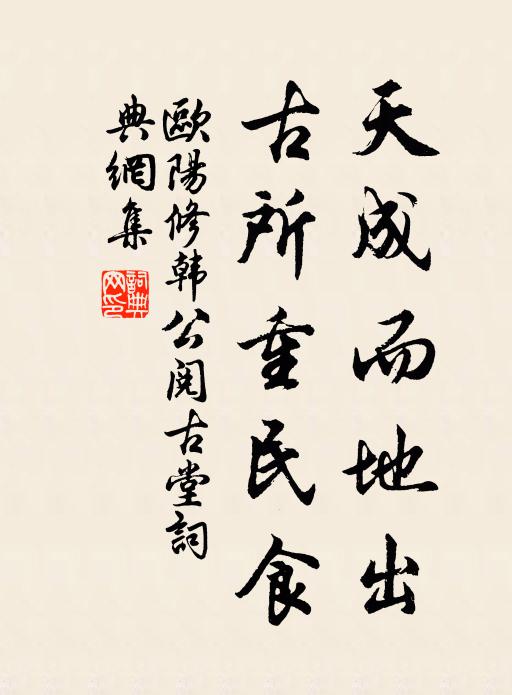 天成而地出
古所重民食
歐陽修韩公阅古堂詞
典網集
詞典网印